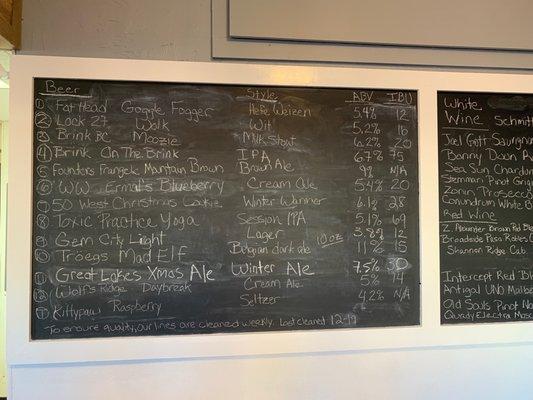 Beer Style ABV IBU
① Fat Head Goggle Fogger Hefe Weizen 5.4% 12
② Lock 27 Wolk Wit 5.2% 16
③ Brink BC Moozie Milk Stout 6.2% 20
④ Brink On The Brink IPA 6.7% 75
⑤ Founders Frangelic Mountain Brown Brown Ale 9% N/A
⑥ WW Ermal's Blueberry Cream Ale 5.4% 20
⑦ 50 West Christmas Cookie Winter Warmer 6.1% 28
⑧ Toxic Practice Yoga Session IPA 5.1% 69
⑨ Gem City Light Lager 3.8% 12
⑩ Troegs Mad Elf Belgian dark ale 10oz 11% 15
⑪ Great Lakes Xmas Ale Winter Ale 7.5% 30
⑫ Wolf's Ridge Daybreak Cream Ale 5% 14
⑬ Kittypaw Raspberry Seltzer 4.2% N/A
To ensure quality, our lines are cleaned weekly. Last cleaned 12-17
White
Wine Schmitt
Joel Gott Sauvignon
Bonny Doon
Sea Sun Chard
Stemmari Pinot Grig
Zonin Prosecco
Conundrum White B
Red Wine
Z. Alexander Brown Red Bl
Broadside Paso Robles C
Shannon Ridge Cab
Intercept Red Bl
Antigal UNO Malbe
Old Souls Pinot No
Quady Electra Mosc